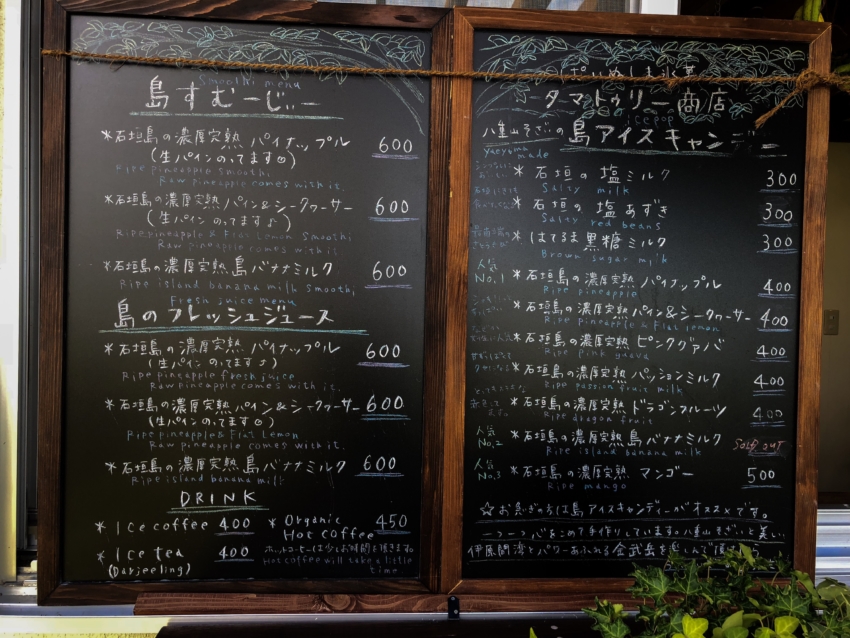 Smoothi menu
島すむーじぃー
*石垣島の濃厚完熟 パイナップル 600
(生パインのってます☺)
Ripe pineapple smoothi
Raw pineapple comes with it.
*石垣島の濃厚完熟 パイン&シークヮーサー 600
(生パインのってます♪)
Ripe pineapple & Flat Lemon Smoothi
Raw pineapple comes with it
*石垣島の濃厚完熟 島バナナミルク 600
Ripe island banana milk smoothi,
Fresh juice menu
島のフレッシュジュース
*石垣島の濃厚完熟 パイナップル 600
(生パインのってます♪)
Ripe pineapple fresh juice
Raw pineapple comes with it.
*石垣島の濃厚完熟 パイン&シークヮーサー 600
(生パインのってます☺)
Ripe pineapple & Flat Lemon
Raw pineapple comes with it.
*石垣島の濃厚完熟 島バナナミルク 600
Ripe island banana milk
DRINK
*Ice coffee 400
*Organic Hot coffee 450
*Ice tea 400
(Darjeeling)
ホットコーヒーは少しお時間を頂きます。
Hot coffee will take a little time
タマトゥリー商店
icepop
八重山そだちの島アイスキャンディー
yaeyama made
*石垣の塩ミルク 300
Salty milk
*石垣の塩あずき 300
Salty red beans
*はてるま黒糖ミルク 300
Brown sugar milk
人気 No.1
*石垣島の濃厚完熟 パイナップル 400
Ripe pineapple
*石垣島の濃厚完熟 パイン&シークヮーサー 400
Ripe pineapple & Flat lemon
*石垣島の濃厚完熟 ピンクグァバ 400
Ripe pink guava
*石垣島の濃厚完熟 パッションミルク 400
Ripe passion fruit milk
*石垣島の濃厚完熟 ドラゴンフルーツ 400
Ripe dragon fruit
人気 No.2
*石垣島の濃厚完熟 島バナナミルク SOLD OUT
Ripe island banana milk
人気 No.3
*石垣島の濃厚完熟 マンゴー 500
Ripe mango
☆お急ぎの方は島アイスキャンディーがオススメです。
一つ一つ心をこめて手作りしています。八重山そだちと美しい
伊原間湾とパワーあふれる金武岳を楽しんで頂けたら